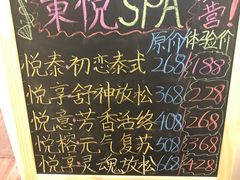 東悦SPA 营!
原价 体验价
悦泰·初恋泰式 268 188
悦享·舒神放松 368 228
悦意·芳香活络 408 268
悦榕·元气复苏 508 368
悦享·灵魂放松 668 428